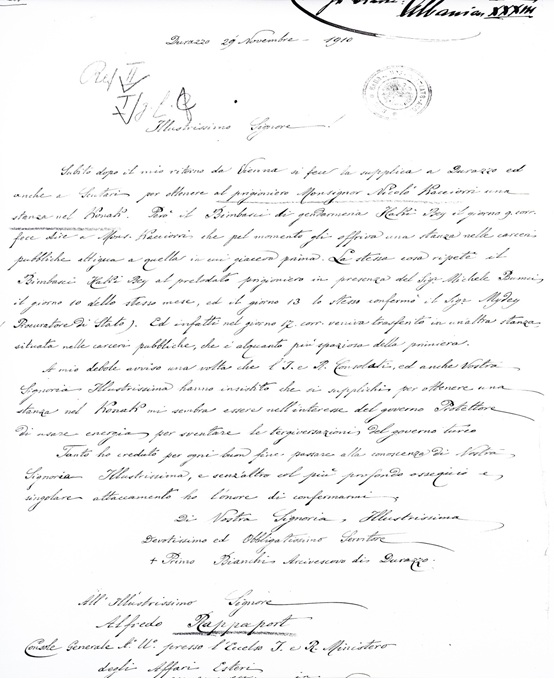 Albanien XXXIII
Durazzo 29 Novembre 1910
Ref II
I
Illustrissimo Signore!
Subito dopo il mio ritorno da Vienna si fece la supplica a Durazzo ed
anche a Scutari per ottenere al prigioniero Monsignor Nicolò Kaciorri una
stanza nel Konak. Però il Bimbasci di gendarmeria Halti Bey il giorno 9 corr.
fece dire a Mons. Kaciorri che pel momento gli offriva una stanza nelle carceri
pubbliche attigua a quella in cui giaceva prima. La stessa cosa ripetè il
Bimbasci Halti Bey al prelodato prigioniero in presenza del Sigr Michele
il giorno 10 dello stesso mese, ed il giorno 13 lo stesso confermò il Sigr Mydey
Procuratore di Stato). Ed infatti nel giorno 17 corr. veniva trasferito in un'altra stanza
situata nelle carceri pubbliche, che è alquanto più spaziosa della primiera.
A mio debole avviso una volta che l'I. e R. Consolati, ed anche Vostra
Signoria Illustrissima hanno insistito che si supplichi per ottenere una
stanza nel Konak mi sembra essere nell'interesse del governo Protettore
di usare energia per sventare le tergiversazioni del governo turco
Tanto ho creduto per ogni buon fine passare alla conoscenza di Vostra
Signoria Illustrissima, e senz'altro col più profondo ossequio e
singolare attaccamento ho l'onore di confermarmi
Di Vostra Signoria Illustrissima
Devotissimo ed Obbligatissimo Servitore
+ Primo Bianchi Arcivescovo di Durazzo.
All' Illustrissimo Signore
Alfredo Rappaport
Console Generale A. U. presso l'Eccelso I. e R. Ministero
degli Affari Esteri